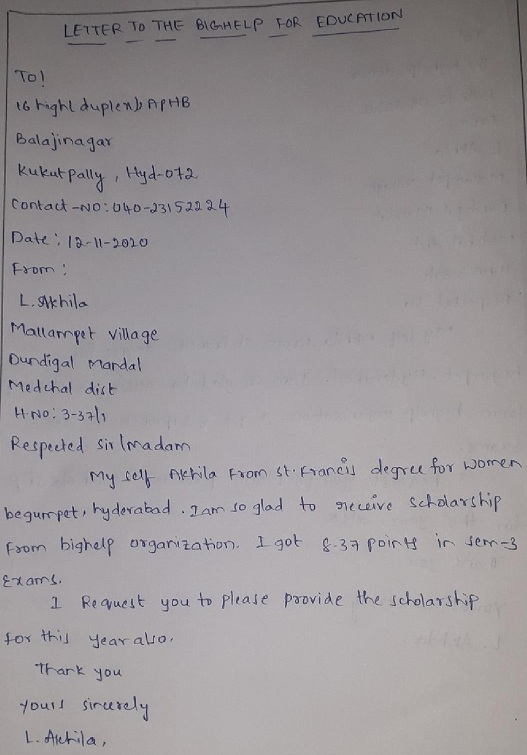 LETTER TO THE BIGHELP FOR EDUCATION
To!
16 hight duplex, APHB
Balajinagar
Kukutpally, Hyd-072
Contact-NO: 040-23152224
Date: 12-11-2020
From:
L. Akhila
Mallampet village
Dundigal Mandal
Medchal dist
H.NO: 3-37/1
Respected sir/madam
My self Akhila From st. francis degree for women
begumpet, hyderabad. I am so glad to receive scholarship
From bighelp organization. I got 8.37 points in sem-3
Exams.
I Request you to please provide the scholarship
for this year also.
Thank you
yours sincerely
L. Akhila,